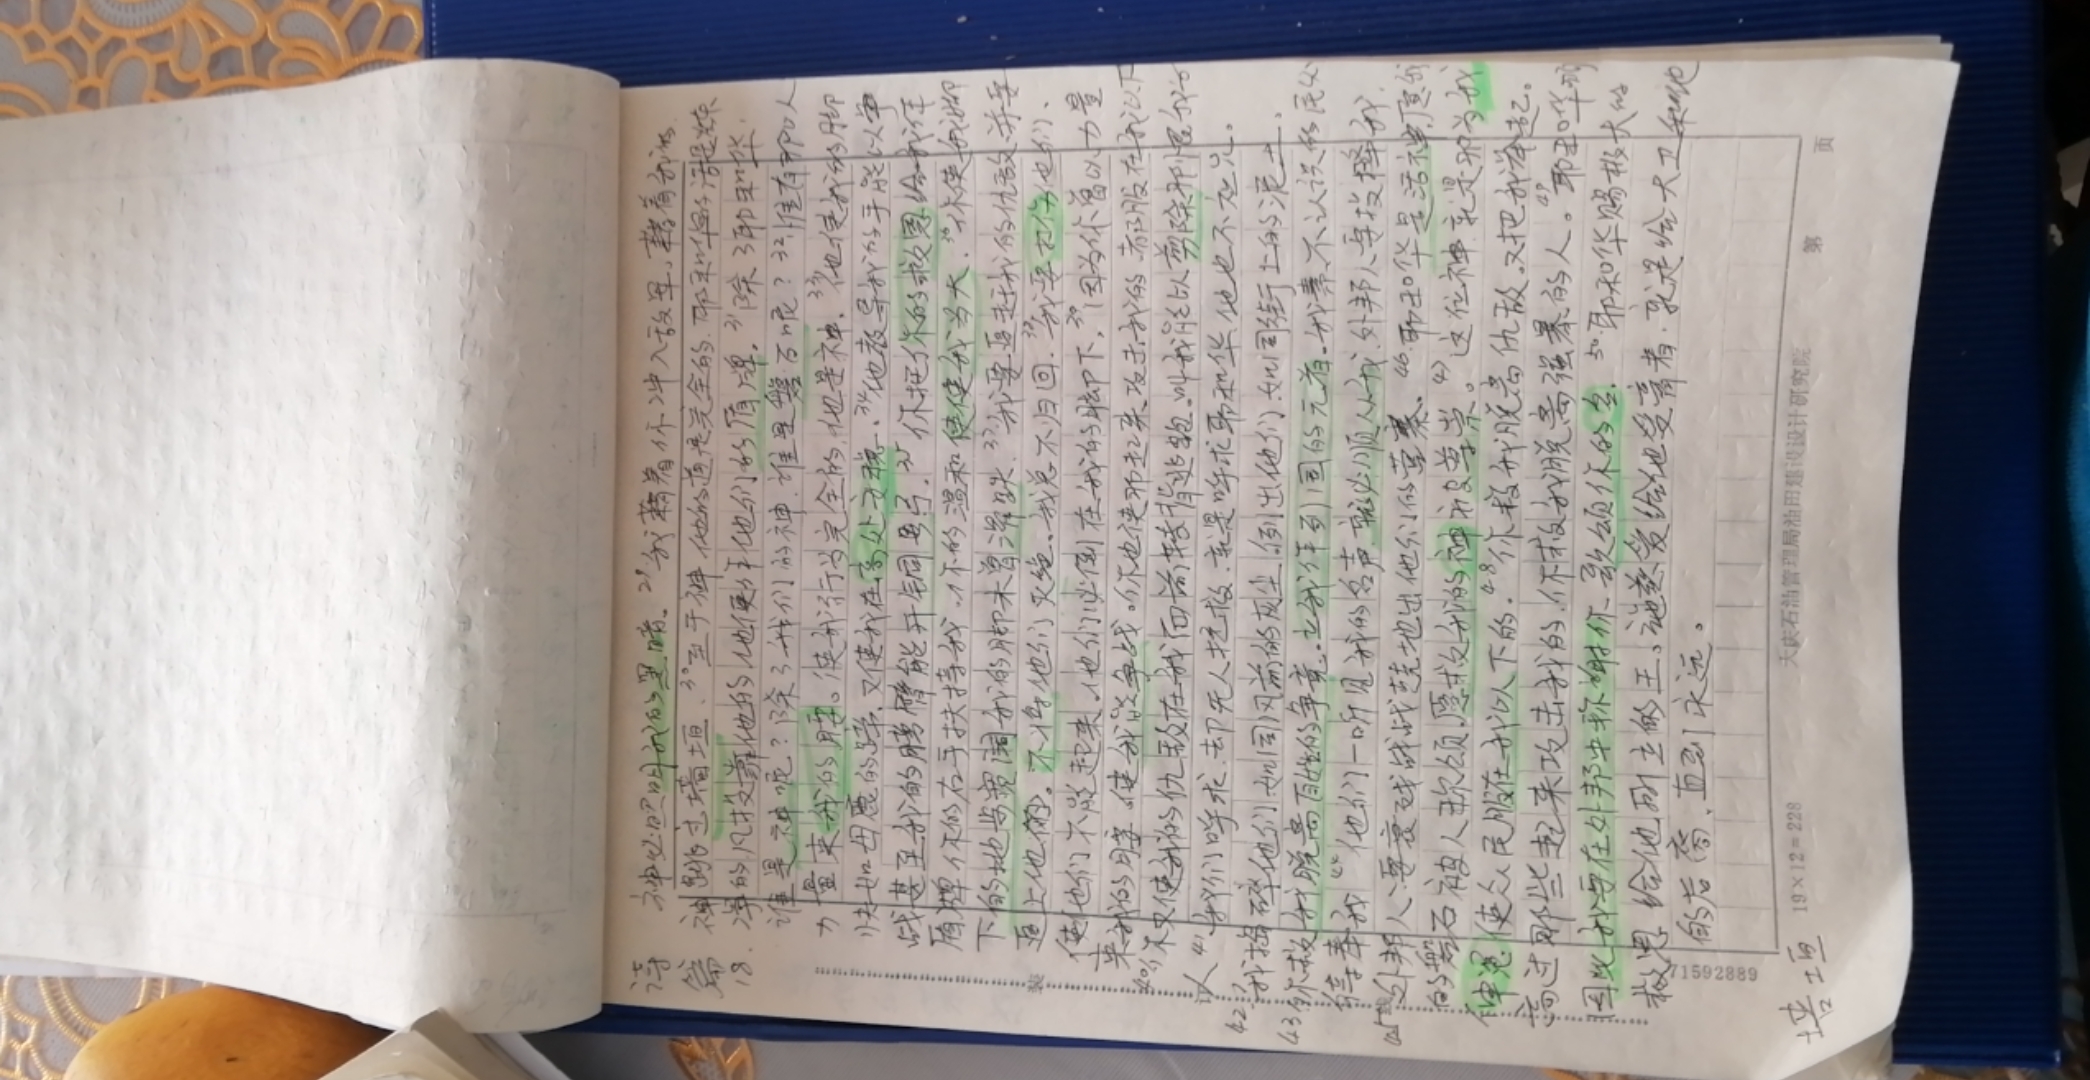 诗 神必照明我的黑暗。29我藉着你冲入敌军,藉着我的
篇 神跳过墙垣。30至于神他的道是完全的,耶和华的话是炼
18. 净的,凡投靠他的,他便作他们的盾牌。31除了耶和华
谁是神呢?除了我们的神,谁是磐石呢?32惟有那以
力量束我的腰。使我行为完全的,他是神。33他使我的脚
快如母鹿的蹄,又使我在高处安稳。34他教导我的手能以争
战甚至我的膀臂能开铜弓。35你把你的救恩给我作
盾牌你的右手扶持我,你的温和使我为大。36你使我脚
下的地步宽阔我的脚未曾滑跌。37我要追赶我的仇敌并要
追上他们。不将他们灭绝。我总不归回。38我要打伤他们,
使他们不能起来。他们必倒在我的脚下。39因为你曾以力量
束我的腰,使我能争战。你也使那起来攻击我的都服在我以下
40你又使我的仇敌在我面前转背逃跑。叫我能以剪除那恨我的
人41他们呼求,却无人拯救,就是呼求耶和华他也不应允。
42我捣碎他们如同风前的灰尘,倒出他们,如同街上的泥土。
43你救我脱离百姓的争竞。立我作列国的元首。我素不认识的民必
事奉我44他们一听见我的名声就必顺从我,外邦人要投降我。
45外邦人要衰残战战兢兢地出他们的营寨。46耶和华是活神,愿我
的磐石被人称颂,愿救我的神被尊崇。47这位神就是那为我
伸冤使众民服在我以下的。48你救我脱离仇敌,又把我举起。
高过那些起来攻击我的,你救我脱离强暴的人。49耶和华啊
因此我要在外邦中称谢你,歌颂你的名。50耶和华赐极大的
救恩给他所立的王。施慈爱给他受膏者,就是给大卫和他
的后裔,直到永远。
装
订
线
71592889
19×12=228
大庆石油管理局油田建设设计研究院
第 页